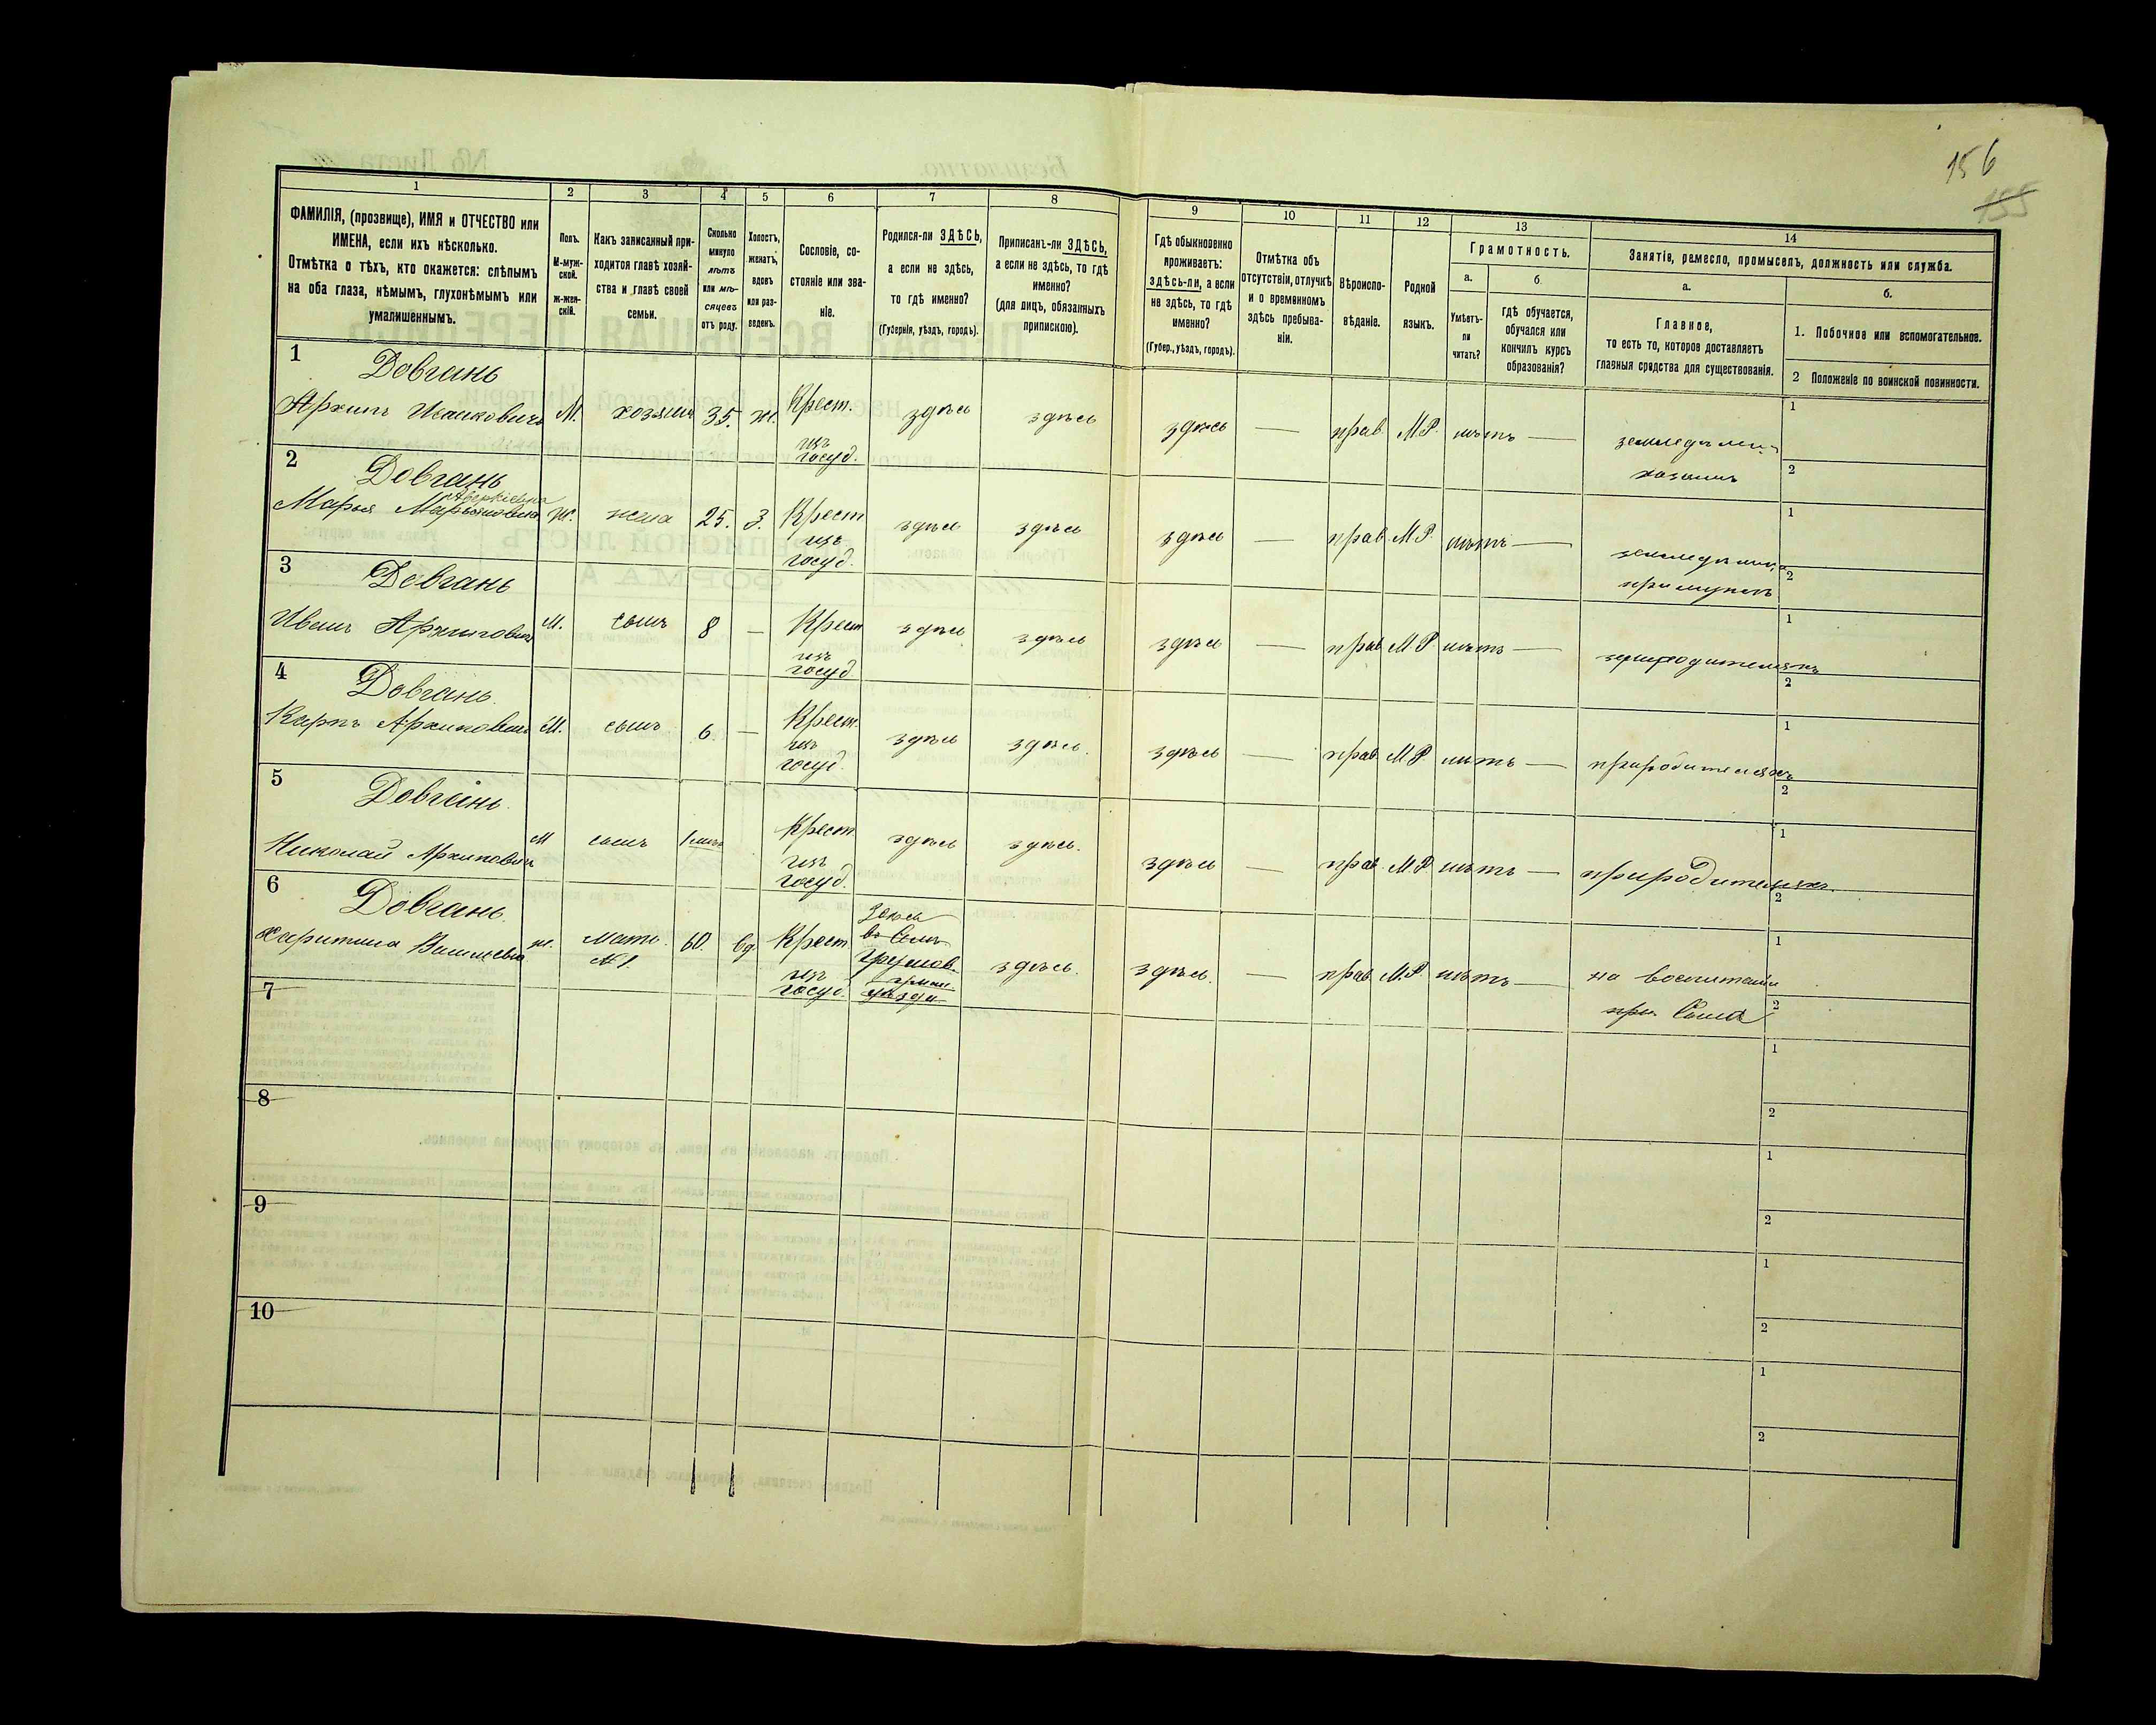 156
155
1
2
3
4
5
6
7
8
9
10
11
12
13
14
ФАМИЛІЯ, (прозвище), ИМЯ и ОТЧЕСТВО или
ИМЕНА, если ихъ нѣсколько.
Отмѣтка о тѣхъ, кто окажется: слѣпымъ
на оба глаза, нѣмымъ, глухонѣмымъ или
умалишеннымъ.
Полъ.
М-муж-
ской.
ж-жен-
скій.
Какъ записанный при-
ходится главѣ хозяй-
ства и главѣ своей
семьи.
Сколько
минуло
лѣтъ
или мѣ-
сяцевъ
отъ роду.
Холостъ,
женатъ,
вдовъ
или раз-
веденъ.
Сословіе, со-
стояніе или зва-
ніе.
Родился-ли ЗДѢСЬ,
а если не здѣсь,
то гдѣ именно?
(Губернія, уѣздъ, городъ).
Приписанъ-ли ЗДѢСЬ,
а если не здѣсь, то гдѣ
именно?
(для лицъ, обязанныхъ
припискою).
Гдѣ обыкновенно
проживаетъ:
здѣсь-ли, а если
не здѣсь, то гдѣ
именно?
(Губер., уѣздъ, городъ).
Отмѣтка объ
отсутствіи, отлучкѣ
и о временномъ
здѣсь пребыва-
ніи.
Вѣроиспо-
вѣданіе.
Родной
языкъ.
Грамотность.
а.
Умѣетъ-
ли
читать?
б.
гдѣ обучается,
обучался или
кончилъ курсъ
образованія?
Занятіе, ремесло, промыселъ, должность или служба.
а.
Главное,
то есть то, которое доставляетъ
главныя средства для существованія.
б.
1. Побочное или вспомогательное.
2 Положеніе по воинской повинности.
1
Довгань
Архипъ Исаковичъ М. хозяинъ 35. ж. Крест. изъ госуд. здѣсь здѣсь здѣсь — прав. М.Р. нѣтъ —
хозяинъ
1
2
2
Довгань
Аверкіевна
Марья ж. жена 25. З. Крест изъ госуд. здѣсь здѣсь здѣсь — прав. М.Р. нѣтъ —
при мужѣ
1
2
3
Довгань
Иванъ Архиповичъ М. сынъ 8 — Крест изъ госуд здѣсь здѣсь здѣсь — прав М.Р. нѣтъ —
1
2
4
Довгань.
Карпъ Архиповичъ М. сынъ 6 — Крест. изъ госуд. здѣсь здѣсь. здѣсь — прав. М.Р. нѣтъ — при родителяхъ
1
2
5
Довгань.
Николай Архиповичъ М сынъ Крест. изъ госуд. здѣсь здѣсь. здѣсь — прав. М.Р. нѣтъ — при родителяхъ
1
2
6
Довгань.
Харитина Васильевна ж. мать №1. 60. вд. Крест изъ госуд.
Здѣсь
здѣсь. здѣсь. — прав. М.Р. нѣтъ — на воспитаніи
при Сынѣ
1
2
7
1
2
8
1
2
9
1
2
10
1
2